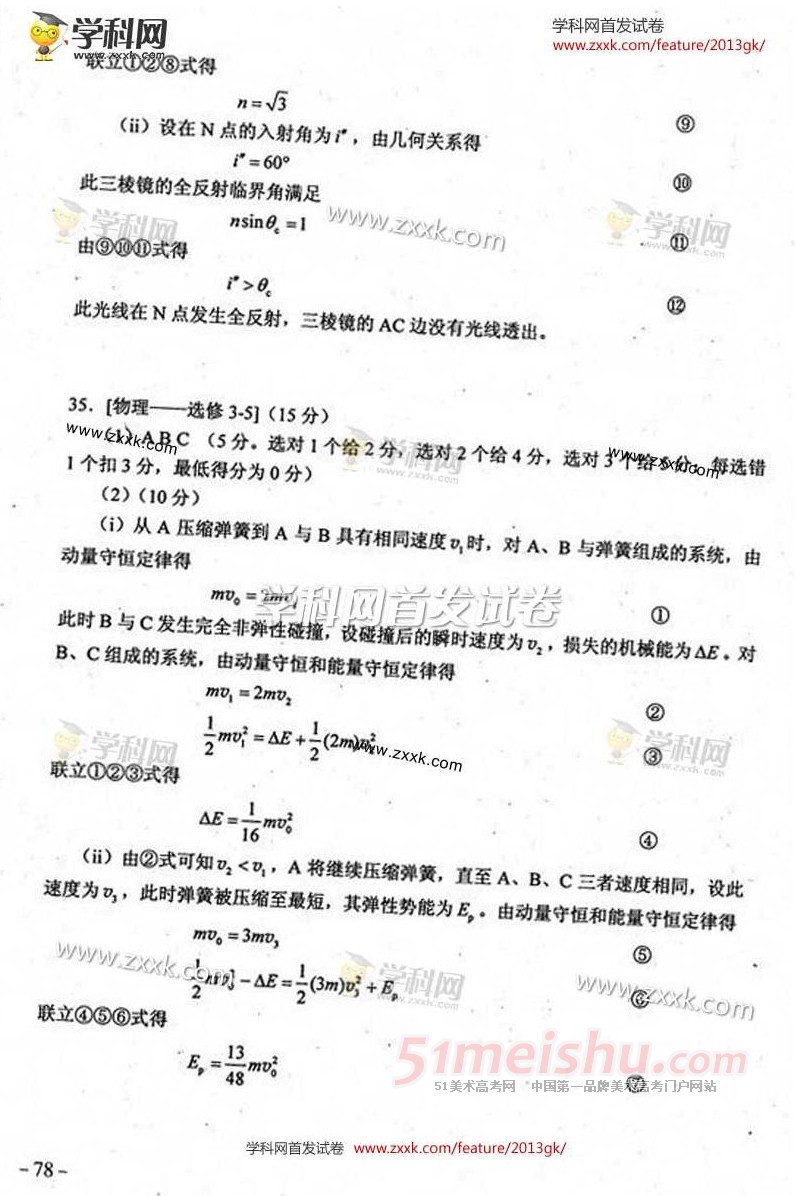 学科网
www.zxxk.com
学科网首发试卷
www.zxxk.com/feature/2013gk/
联立①②⑧式得
n=√3 ⑨
（ii）设在 N 点的入射角为 i″，由几何关系得
i″=60° ⑩
此三棱镜的全反射临界角满足
nsinθc=1 ⑪
由⑨⑩⑪式得
i″>θc
此光线在 N 点发生全反射，三棱镜的 AC 边没有光线透出。 ⑫
学科网
www.zxxk.com
学科网
35．[物理——选修 3-5]（15 分）
（1）ABC （5 分。选对 1 个给 2 分，选对 2 个给 4 分，选对 3 个给 5 分。每选错
1 个扣 3 分，最低得分为 0 分）
www.zxxk.com
学科网
www.zxxk.com
（2）（10 分）
（i）从 A 压缩弹簧到 A 与 B 具有相同速度 v₁时，对 A、B 与弹簧组成的系统，由
动量守恒定律得
mv₀ = 2mv₁ ①
学科网首发试卷
此时 B 与 C 发生完全非弹性碰撞，设碰撞后的瞬时速度为 v₂，损失的机械能为 ΔE。对
B、C 组成的系统，由动量守恒和能量守恒定律得
mv₁ = 2mv₂ ②
½mv₁² = ΔE + ½(2m)v₂² ③
学科网
www.zxxk.com
学科网
联立①②③式得
ΔE = 1/16 mv₀² ④
（ii）由②式可知 v₂ < v₁，A 将继续压缩弹簧，直至 A、B、C 三者速度相同，设此
速度为 v₃，此时弹簧被压缩至最短，其弹性势能为 Ep。由动量守恒和能量守恒定律得
mv₀ = 3mv₃ ⑤
½mv₀² − ΔE = ½(3m)v₃² + Ep ⑥
www.zxxk.com
学科网
www.zxxk.com
联立④⑤⑥式得
Ep = 13/48 mv₀² ⑦
51meishu.com
51美术高考网 中国第一品牌美术高考门户网站
学科网首发试卷 www.zxxk.com/feature/2013gk/
- 78 -